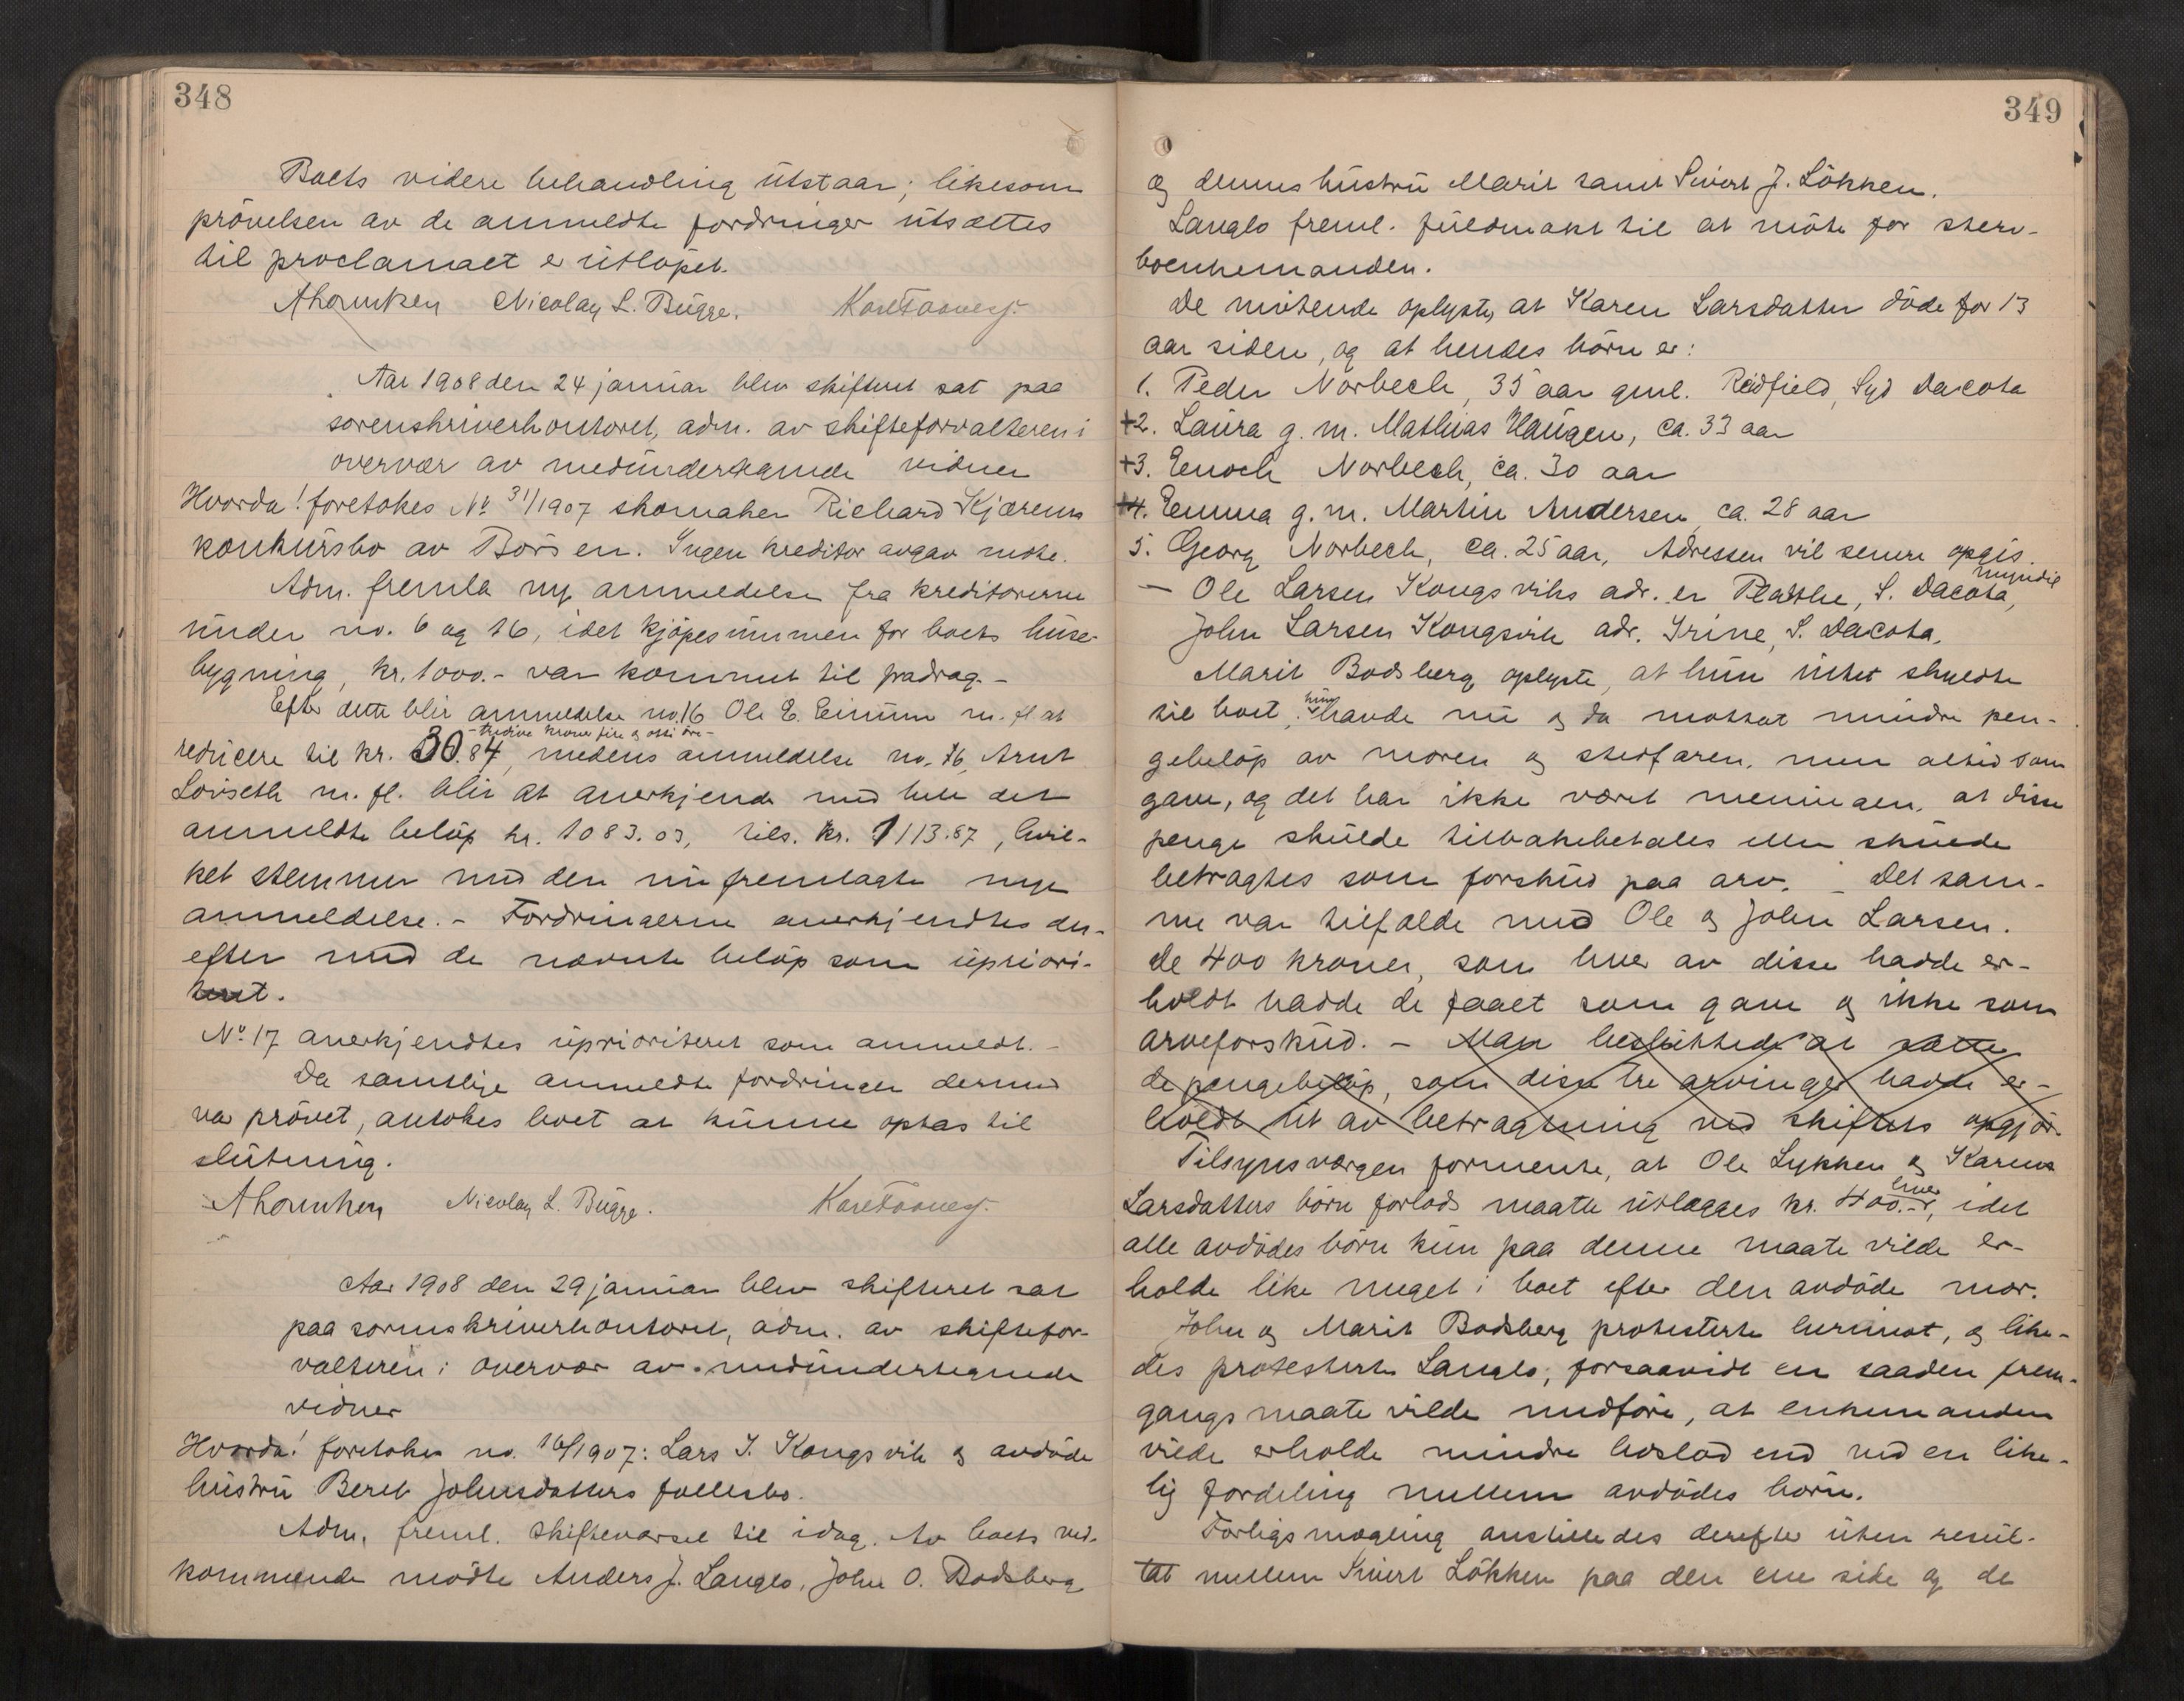 348
Boets videre behandling utstaar; likesom
prövelsen av de anmeldte fordringer utsættes
til proclamaet er utlöpet.
Nicolay L. Bugge.
Aar 1908 den 24 januar blev skifteret sat paa
sorenskriverkontoret, adm. av skifteforvalteren i
overvær av medundertegnede vidner
Hvorda! foretokes No 31/1907 skomaker Richard Kjærems
konkursbo av Börsen. Ingen kreditor avgav möte.
Adm. fremla ny anmeldelse fra kreditorerne
under no. 6 og 16, idet kjöpesummen for boets huse-
bygning, kr. 1000.- var kommet til fradrag. -
Efter dette blir anmeldelse no. 16 Ole E. Einum m. fl at
- tredive kroner fire og otti öre -
reducere til kr. 30.84, medens anmeldelse no. 76, Arnt
Lövseth m. fl. blir at anerkjende med hele det
anmeldte belöp kr. 1083.03, tils. kr. 1113.87, hvil-
ket stemmer med den nu fremlagte nye
anmeldelse. - Fordringerne anerkjendtes der-
efter med de nævnte belöp som upriori-
tert.
No 17 anerkjendtes uprioriteret som anmeldt. -
Da samtlige anmeldte fordringer dermed
var prövet, antokes boet at kunne optas til
slutning.
Nicolay L. Bugge.
Aar 1908 den 29 januar blev skifteret sat
paa sorenskriverkontoret, adm. av skiftefor-
valteren i overvær av medundertegnede
vidner
Hvorda! foretokes no. 16/1907: Lars J. Kongsvik og avdöde
hustru Beret Johnsdatters fællesbo.
Adm. freml. skiftevarsel til idag. Av boets ved-
kommende mödte Anders J. Langlo, John O. Bodsberg
349
og dennes hustru Marit samt Sivert J. Lökken.
Langlo freml. fuldmakt til at möte for sterv-
boenkemanden.
De mötende oplyste, at Karen Larsdatter döde for 13
aar siden, og at hendes börn er:
1. Peder Norbech, 35 aar gml. Redfield, Syd Dacota
+2. Laura g. m. Mathias Haugen, ca. 33 aar
+3. Enoch Norbech, ca. 30 aar
+4. Emma g. m. Martin Andersen ca. 28 aar
5. Georg Norbech, ca. 25 aar, Adressen vil senere opgis.
myndig
- Ole Larsen Kongsviks adr. er Platthe, S. Dacota,
John Larsen Kongsvik adr. Irine, S. Dacota.
Marit Bodsberg oplyste, at hun intet skyldte
til boet, hun havde nu og da motat mindre pen-
gebelöp av moren og stedfaren, men altid som
gave, og det har ikke været meningen, at disse
penge skulde tilbakebetales eller skulde
betragtes som forskud paa arv. - Det sam-
me var tilfælde med Ole og John Larsen.
De 400 kroner, som hver av disse hadde er-
holdt hadde de faaet som gave og ikke som
arveforskud. - Man besluttede at sætte
de pengebelöp, som disse tre arvinger havde er-
holdt ut av betragtning ved skiftets opgjör.
Tilsynsværgen formente, at Ole Lykken og Karens
Larsdatters börn forlods maatte utlægges kr. 400.- hver, idet
alle avdödes börn kun paa denne maate vilde er-
holde like meget i boet efter den avdöde mor.
John og Marit Bodsberg protesterte herimot, og like-
des protesterte Langlo, forsaavidt en saaden frem-
gangsmaate vilde medföre, at enkemanden
vilde erholde mindre boslod end ved en like-
lig fordeling mellem avdödes börn.
Forligsmægling anstilledes derefter uten resul-
tat mellem Sivert Lökken paa den ene side og de